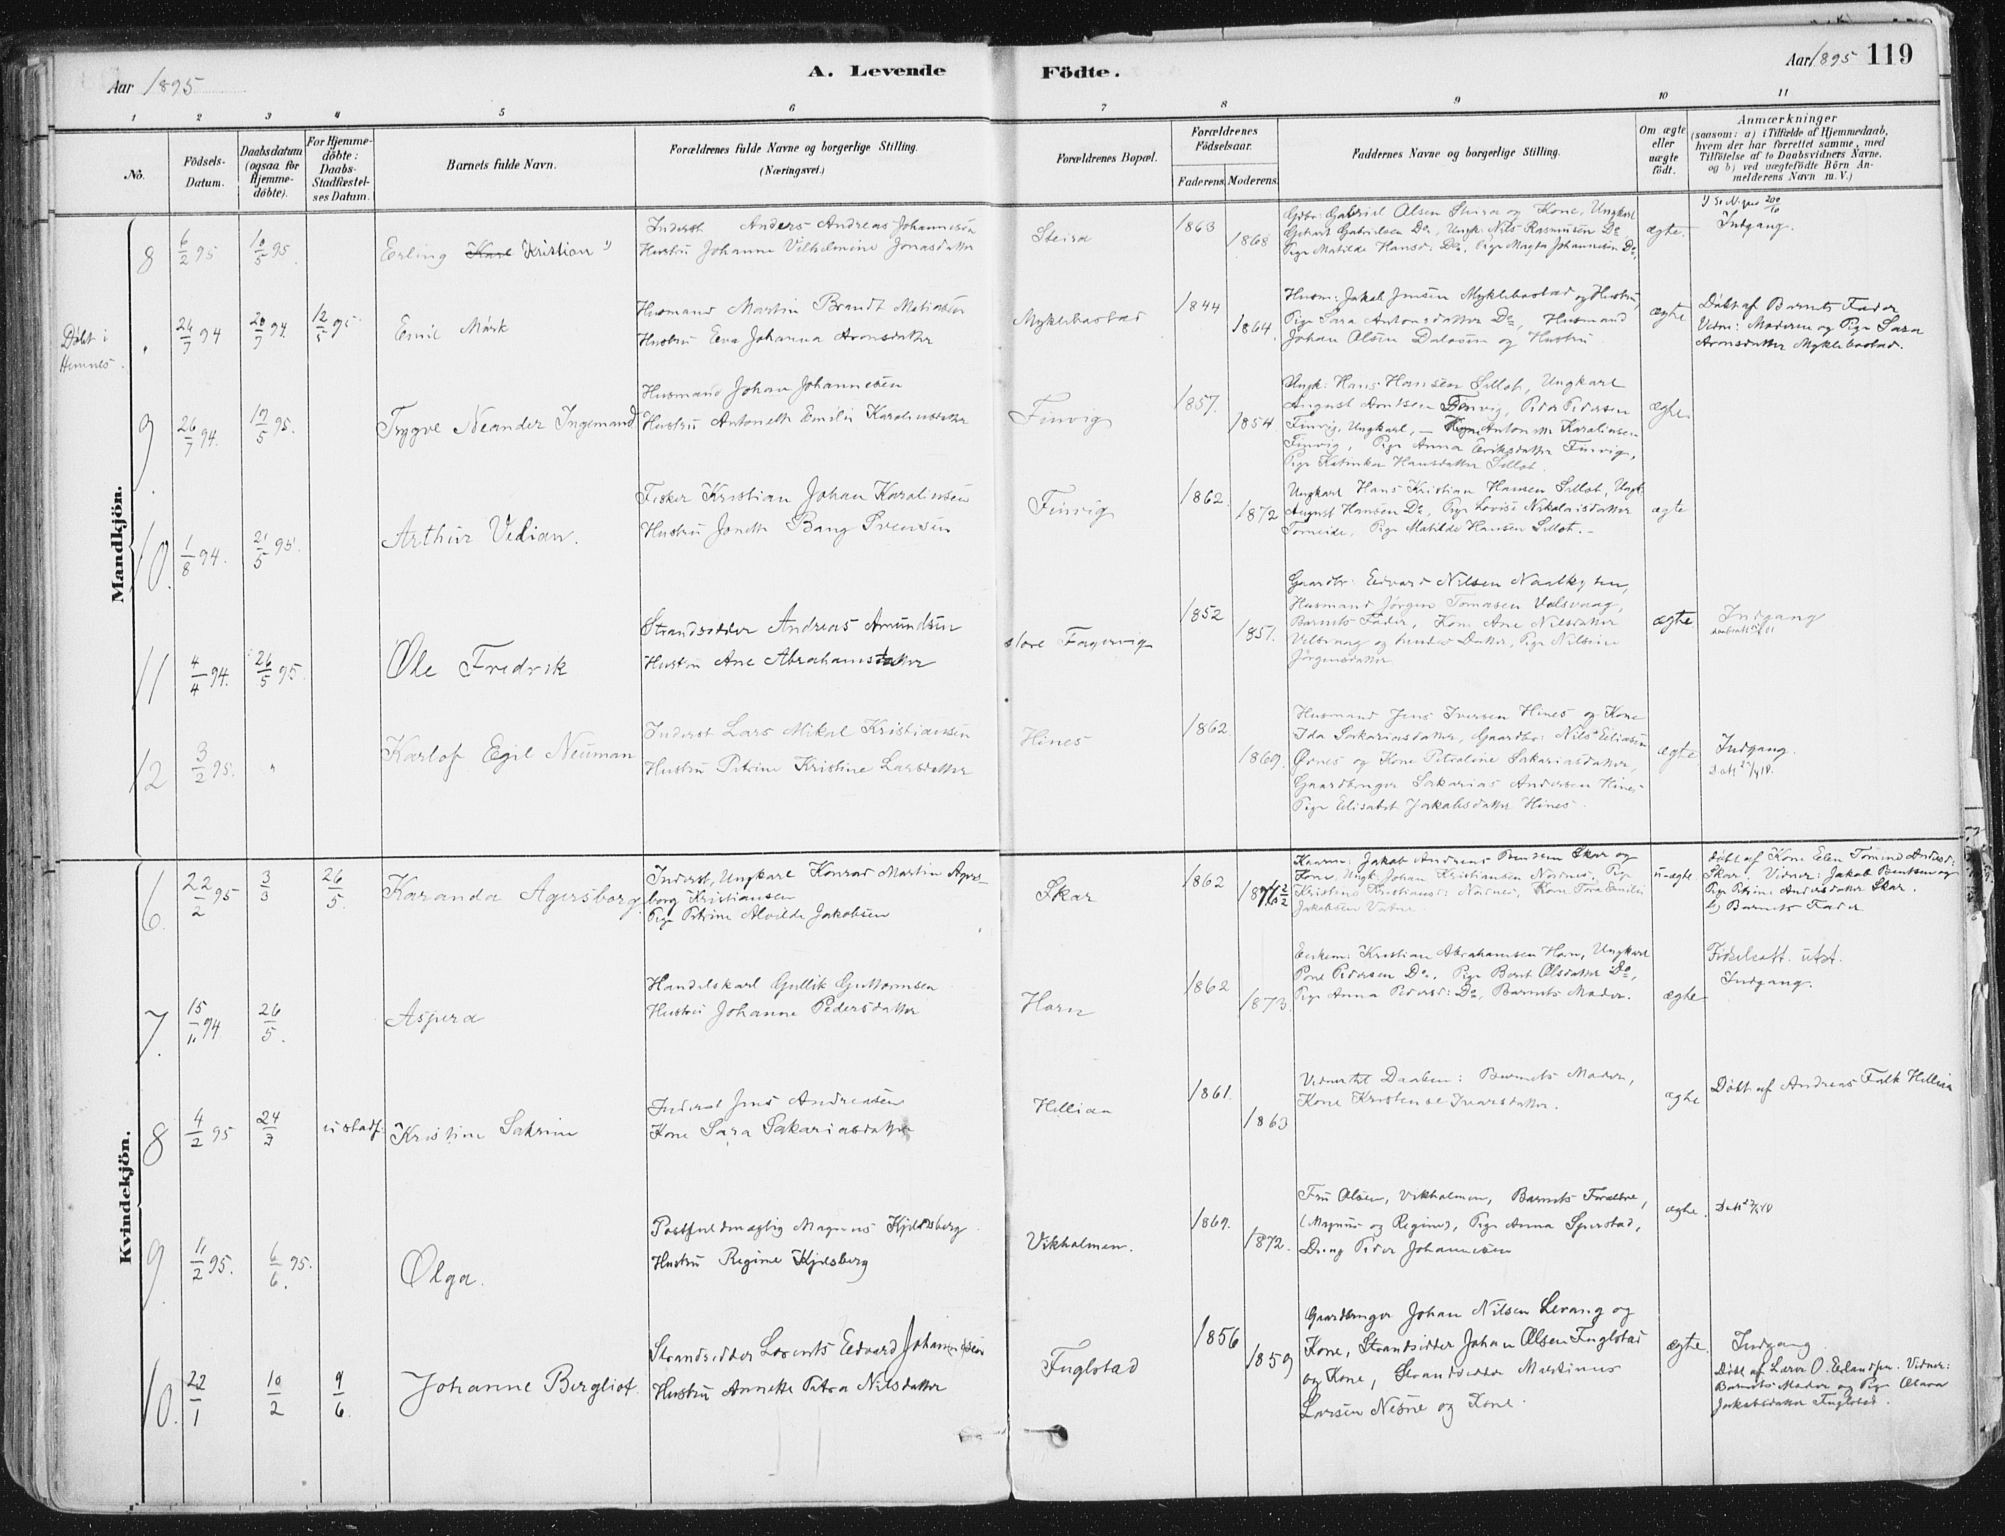 Aar 1895
A. Levende Födte.
Aar 1895 119
1 2 3 4 5 6 7 8 9 10 11
No.
Födsels-Datum.
Daabsdatum (ogsaa for Hjemme-döbte).
For Hjemme-döbte: Daabs-Stadfæstel-ses Datum.
Barnets fulde Navn.
Forældrenes fulde Navne og borgerlige Stilling.
(Næringsvei.)
Forældrenes Bopæl.
Forældrenes Födselsaar.
Faderens. Moderens.
Faddernes Navne og borgerlige Stilling.
Om ægte eller uægte födt.
Anmærkninger
(saasom: a) i Tilfælde af Hjemmedaab,
hvem der har forrettet samme, med
Tilföielse af to Daabsvidners Navne,
og b) ved uægtefödte Börn An-
melderens Navn m. V.)
Mandkjön.
8 6/2 95 10/5 95. Erling Karl Kristian
Inderst Anders Andreas Johannesen
Hustru Johanne Vilhelmine Jonasdatter
Steira 1863 1868
Gdbr: Gabriel Olsen Steira og Kone, Ungkarl
Gerhart Gabrielsen Do, Ungk. Nils Rasmussen Do
Pige Matilde Hansd. Do, Pige Magta Johannesen Do.
ægte.
Indgang.
Døbt i Hemnes.
26/7 94 29/7 94. 12/5 95. Emil Mark
Husmand Martin Brandt Matiasen
Hustru Eva Johanna Aronsdatter
Myklebostad 1844 1864
Husm: Jakob Jensen Myklebostad og Hustru,
Pige Sara Antonsdatter Do, Husmand
Johan Olsen Dalosen og Hustru
ægte
Døbt af Barnets Fader
Vidn: Moderen og Pige Sara
Aronsdatter Myklebostad.
9. 26/7 94. 12/5 95. Trygve Neander Ingemand
Husmand Johan Johannesen
Hustru Antonette Emilie Karoliusdatter
Finvig 1857. 1854
Ungk: Hans Hansen Sellot, Ungkarl
August Arntsen Finvig, Peder Pedersen
Finvig, Ungkarl, – Antonette Karoliusen
Finvig, Pige Anna Eriksdatter Finvig,
Pige Katinka Hansdatter Sellot.
ægte.
10. 1/8 94. 21/5 95. Arthur Vedian.
Fisker Kristian Johan Karoliusen
Hustru Jonette Bang Svensen
Finvig 1862. 1872
Ungkarl Hans Kristian Hansen Sellot, Ungk
August Hansen Do, Pige Lovise Nikolaisdatter
Torneide, Pige Matilde Hansen Sellot.–
ægte
11 4/4 94. 26/5 95. Ole Fredrik
Strandsidder Andreas Amundsen
Hustru Ane Abrahamsdatter
store Fagervig 1852 1851.
Gaardbr: Edvard Nilsen
Husmand Jörgen Tomasen Velsvaag,
Barnets Fader, Kone Ane Nilsdatter
Velsvaag og hendes Datter, Pige Nilsine
Jörgensdatter
ægte
Indgang
12 3/2 95. " Karlof Egil Neuman
Inderst Lars Mikal Kristiansen
Hustru Petrine Kristine Larsdatter
Hines 1862 1869.
Husmand Jens Iversen Hines og Kone
Ida Sakariasdatter, Gaardbr: Nils Eliasen
Ørnes og Kone Petroline Sakariasdatter,
Gaardbruger Sakarias Andersen Hines
Pige Elisabet Jakobsdatter Hines.
ægte
Indgang.
Kvindekjön.
6. 22/2 95 3/3 26/5. Karanda Agersborg
Inderst, Ungkarl Konrad Martin Agers-
borg Kristiansen
Pige Petrine Alvilde Jakobsen
Skar 1862
Jakob Andreas Bentsen Skar og
Kone, Ungk. Johan Kristiansen Nordnes, Pige
Kristine Kristiansd: Nordnes, Kone Tora Emilie
Jakobsen
uægte
Døbt af Kone Elen Tomine Andersd:
Skar. Vidner: Jakob Bentsen og
Pige Petrine Andersdatter Skar.
b) Barnets Fader
7. 15/11 94 26/5. Aspera
Handelskarl Gullik Guttormsen
Hustru Johanne Pedersdatter
Horn 1862 1873.
Kristian Abrahamsen Horn, Ungkarl
Pedersen Do, Pige Berit Olsdatter Do,
Pige Anna Pedersd: Do, Barnets Moder.
ægte
Fødselsatt. utst.
Indgang.
8 4/2 95 24/3 ei stadf. Kristine Sakrine
Inderst Jens Andreasen
Kone Sara Sakariasdatter
Hellian 1861. 1863
Vidner til Daaben: Barnets Moder,
Kone Kristense Ivarsdatter.
ægte
Døbt af Andreas Falk Hellian
9. 11/2 95. 6/6 95. Olga.
Postfuldmægtig Magnus Kjelsberg
Hustru Regine Kjelsberg
Vikholmen. 1869. 1872.
Fru Olsen, Vikholmen, Barnets Forældre,
(Magnus og Regine), Pige Anna Sperstad,
Dreng Peder Johannesen
ægte.
10. 22/1 10/2 9/6 Johanne Bergliot.
Strandsidder Lorents Edvard Johannesen
Hustru Annette Petra Nilsdatter
Fuglstad 1856 1859
Gaardbruger Johan Nilsen Levang og
Kone, Strandsidder Johan Olsen Fuglstad
og Kone, Strandsidder Martinus
Larsen Nesne og Kone.
ægte.
Indgang
Døbt af Lærer O. Erlandsen. Vidner:
Barnets Moder og Pige Olava
Jakobsdatter Fuglstad.